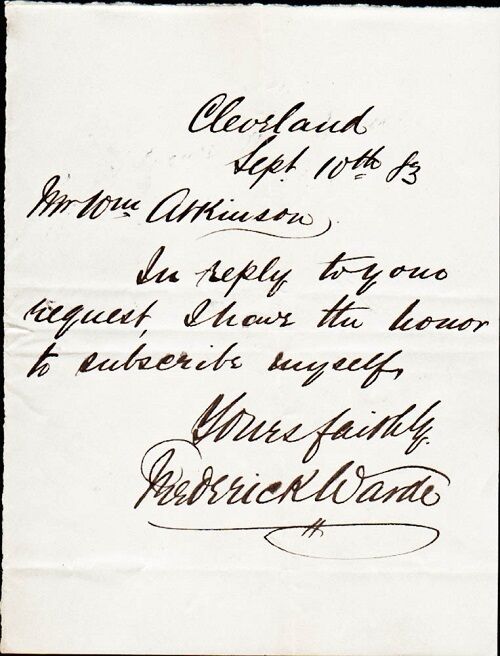 Cleveland
Sept 10th 83
Mr Wm Atkinson
In reply to your
request, I have the honor
to subscribe myself,
Yours faithfly.
Frederick Warde